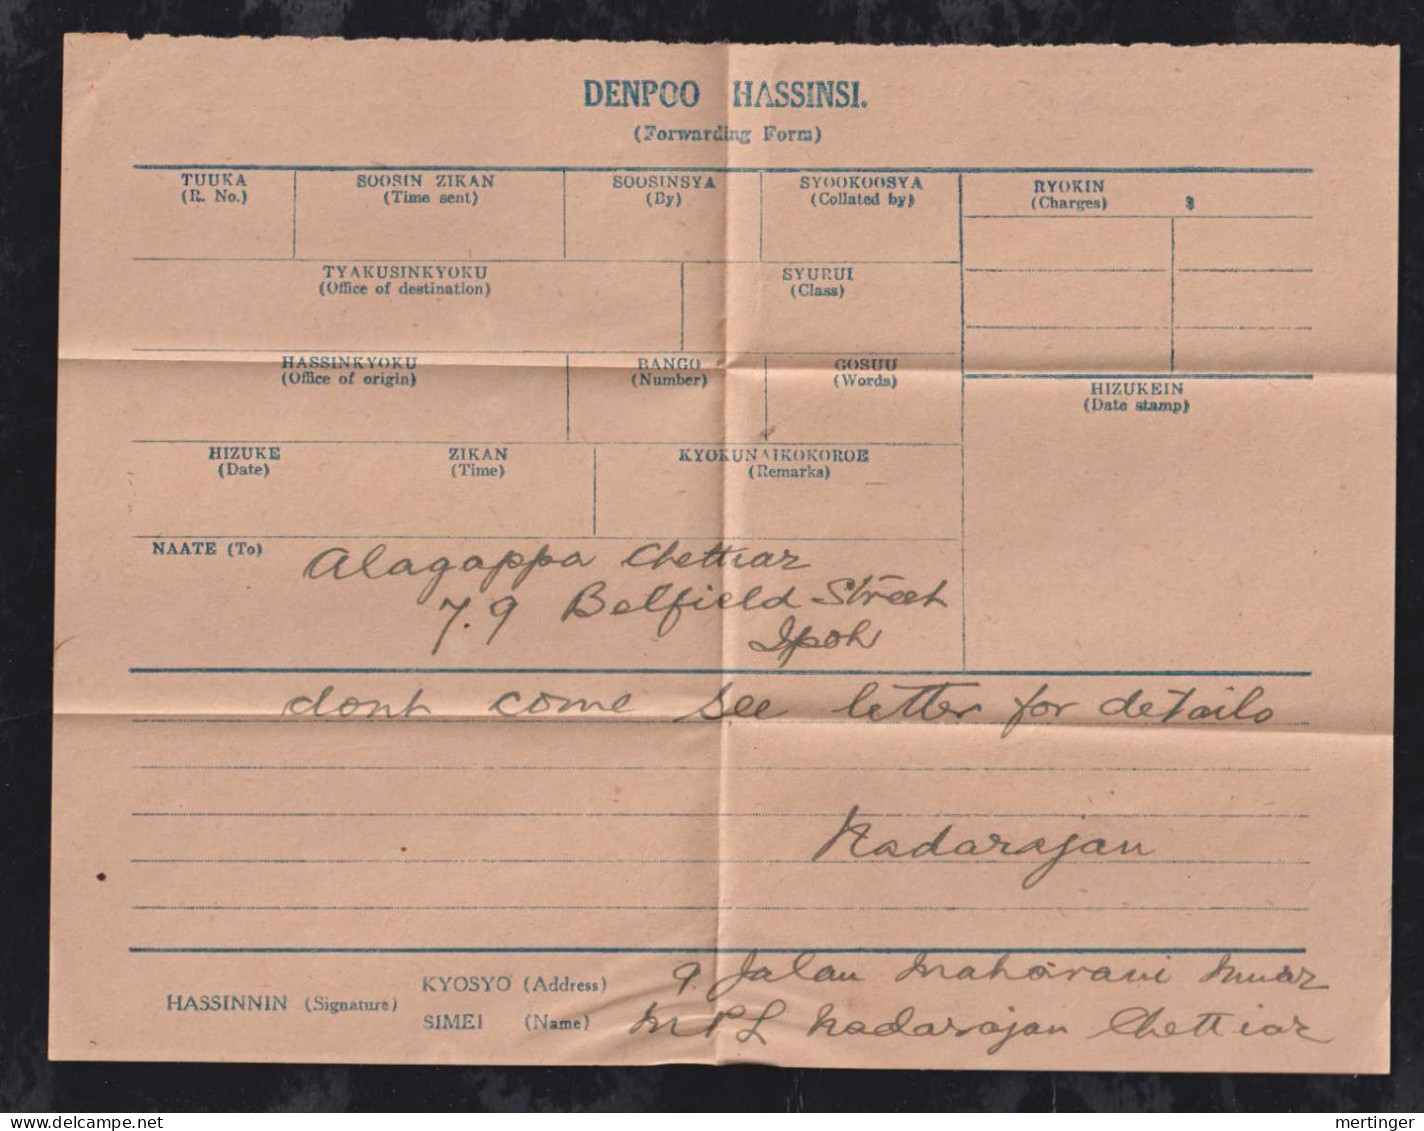 DENPOO HASSINSI.
(Forwarding Form)
TUUKA
(R. No.)
SOOSIN ZIKAN
(Time sent)
SOOSINSYA
(By)
SYOOKOOSYA
(Collated by)
RYOKIN
(Charges) $
TYAKUSINKYOKU
(Office of destination)
SYURUI
(Class)
HASSINKYOKU
(Office of origin)
BANGO
(Number)
GOSUU
(Words)
HIZUKEIN
(Date stamp)
HIZUKE
(Date)
ZIKAN
(Time)
KYOKUNAIKOKOROE
(Remarks)
NAATE (To) Alagappa Chettiar
7.9 Belfield Street
Ipoh
dont come see letter for details
Nadarajan
HASSINNIN (Signature)
KYOSYO (Address) 9. Jalan Maharani Muar
SIMEI (Name) MPL Nadarajan Chettiar
delcampe.net
mertinger